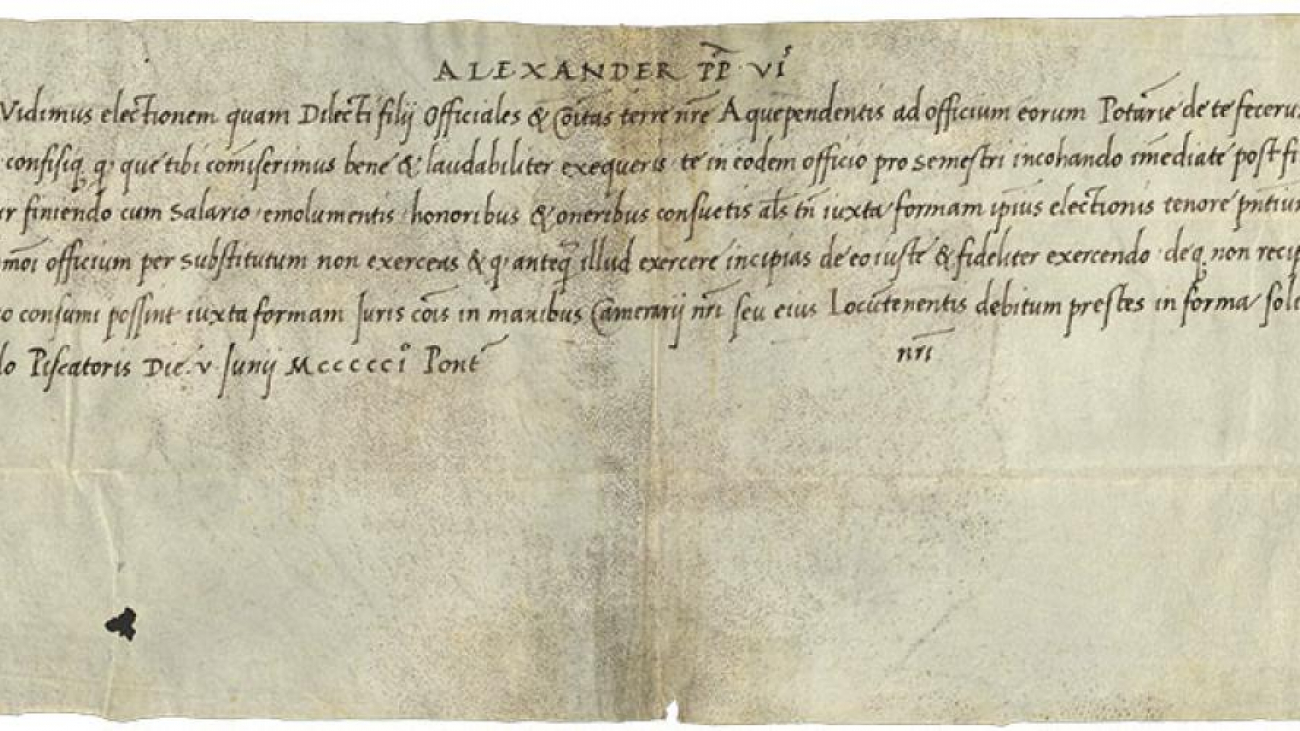 ALEXANDER PP VI
Vidimus electionem quam Dilecti filij Officiales & Cōitas terre nrē Aquependentis ad officium eorum Potarie de te feceru
confisiq q que tibi comiserimus bene & laudabiliter exequeris te in eodem officio pro semestri incohando imediate post fi
r finiendo cum salario emolumentis honoribus & oneribus consuetis als tn iuxta formam ipius electionis tenore pntiu
moi officium per substitutum non exerceas & q anteq illud exercere incipias de eo iuste & fideliter exercendo de q non recip
o consumi possint iuxta formam Juris cois in manibus Camerarij nri seu eius Locutenentis debitum prestes in forma soli
lo Piscatoris Die v Junij MCCCCCI Pont nri